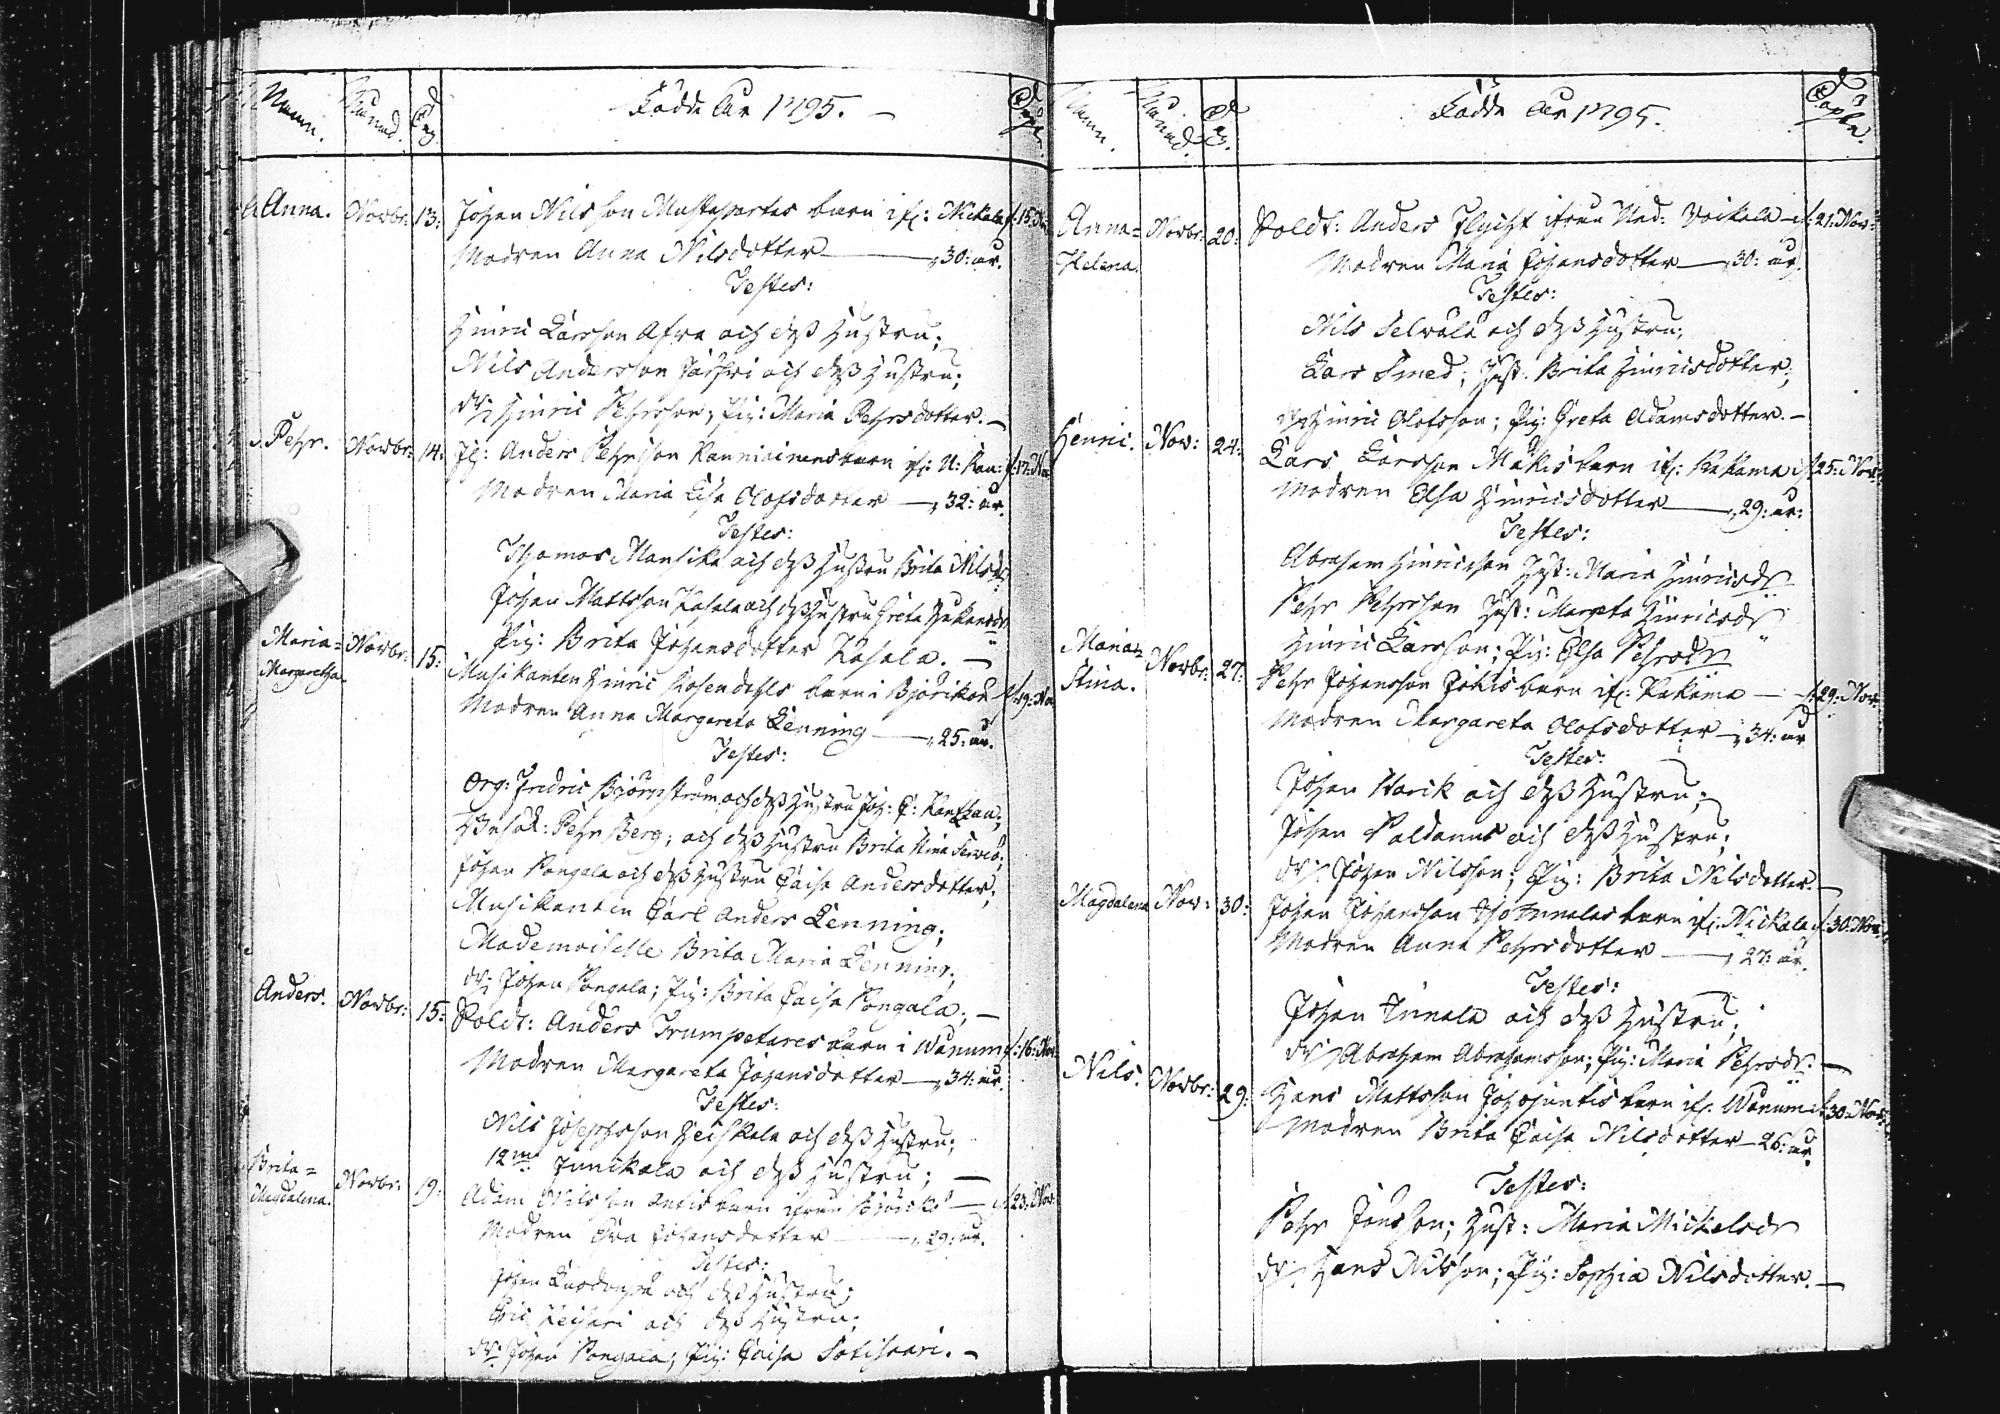 Namn. Månad. Dag Födde År 1795. Döpte
Anna. Novbr: 13: Johan Nilsson barn if: Nickala d: 15:
Modren Anna Nilsdotter — 30: år.
Testes:
Hinric Larsson Afra och dess Hustru;
Nils Andersson och dess Hustru;
Dr: Hinric Pehrsson; Pig: Maria Pehrsdotter. —
Pehr. Novbr: 14: Anders Pehrsson barn if: N: d: 17: No
Modren Maria Lisa Olofsdotter — 32: år.
Testes:
Thomas Mansika och dess Hustru Brita Nilsdr
Johan Mattsson Kasala och dess Hustru Greta
Pig: Brita Johansdotter Kasala. —
Maria= Margaretha. Novbr: 15: Musikanten Hinric Rosendahls barn i Björikou d: 19: No
Modren Anna Margareta Lenning — 25: år.
Testes:
Org: Fredric Björnström och dess Hustru Joh: C:
Pehr Berg; och dess Hustru Brita Stina
Johan Pongala och dess Hustru Caisa Andersdotter;
Musikanten Carl Anders Lenning;
Mademoiselle Brita Maria Lenning;
Dr: Johan Pongala; Pig: Brita Caisa Pongala; —
Anders. Novbr: 15: Soldt: Anders Trumpetares barn i Wånum d: 16: Nov
Modren Margareta Johansdotter — 34: år.
Testes:
Nils Josephsson Heiskala och dess Hustru;
12m Junikala och dess Hustru; —
Brita= Magdalena. Novbr: 19: Adam Nilsson Antis barn ifrån — d: 23: Nov
Modren Eva Johansdotter — 29: år.
Testes:
Johan och dess Hustru;
Eric Keisari och dess Hustru;
Dr: Johan Pongala; Pig: Caisa Sotisaari. —
Namn. Månad. Dag. Födde År 1795. Döpte.
Anna= Helena. Novbr: 20: Soldt: Anders Flycht ifrån Ned: Voikala d: 21: Nov:
Modren Maria Johansdotter — 30: år.
Testes:
Nils Selvälä och dess Hustru;
Lars Smed; Hust: Brita Hinricsdotter;
Dr: Hinric Olofsson; Pig: Greta Adamsdotter. —
Henric. Nov: 24: Lars Larsson Mäkis barn if: Kakama d: 25: Nov:
Modren Elsa Hinricsdotter — 29: år:
Testes:
Abraham Hinricsson Hust: Maria Hinricsdr
Pehr Pehrsson Hust: Margeta Hinricsdr
Hinric Larsson; Pig: Elsa Pehrsdr
Maria= Stina. Novbr: 27: Pehr Johansson Jokis barn if: Kakama — d: 29: Nov:
Modren Margareta Olofsdotter — 34: år
Testes:
Johan Harik och dess Hustru;
Johan Paldanus och dess Hustru;
Dr: Johan Nilsson; Pig: Brita Nilsdotter. —
Magdalena Nov: 30: Johan Johansson barn if: Nickala d: 30: Nov:
Modren Anna Pehrsdotter — 27: år.
Testes:
Johan Innala och dess Hustru;
Dr: Abraham Abrahamsson; Pig: Maria Pehrsdr: —
Nils. Novbr: 29: Hans Mattsson barn if: Wånum d: 30: Nov:
Modren Brita Caisa Nilsdotter — 26: år.
Testes:
Pehr Jonsson; Hust: Maria Mickelsdr
Dr: Hans Nilsson; Pig: Sophia Nilsdotter. —